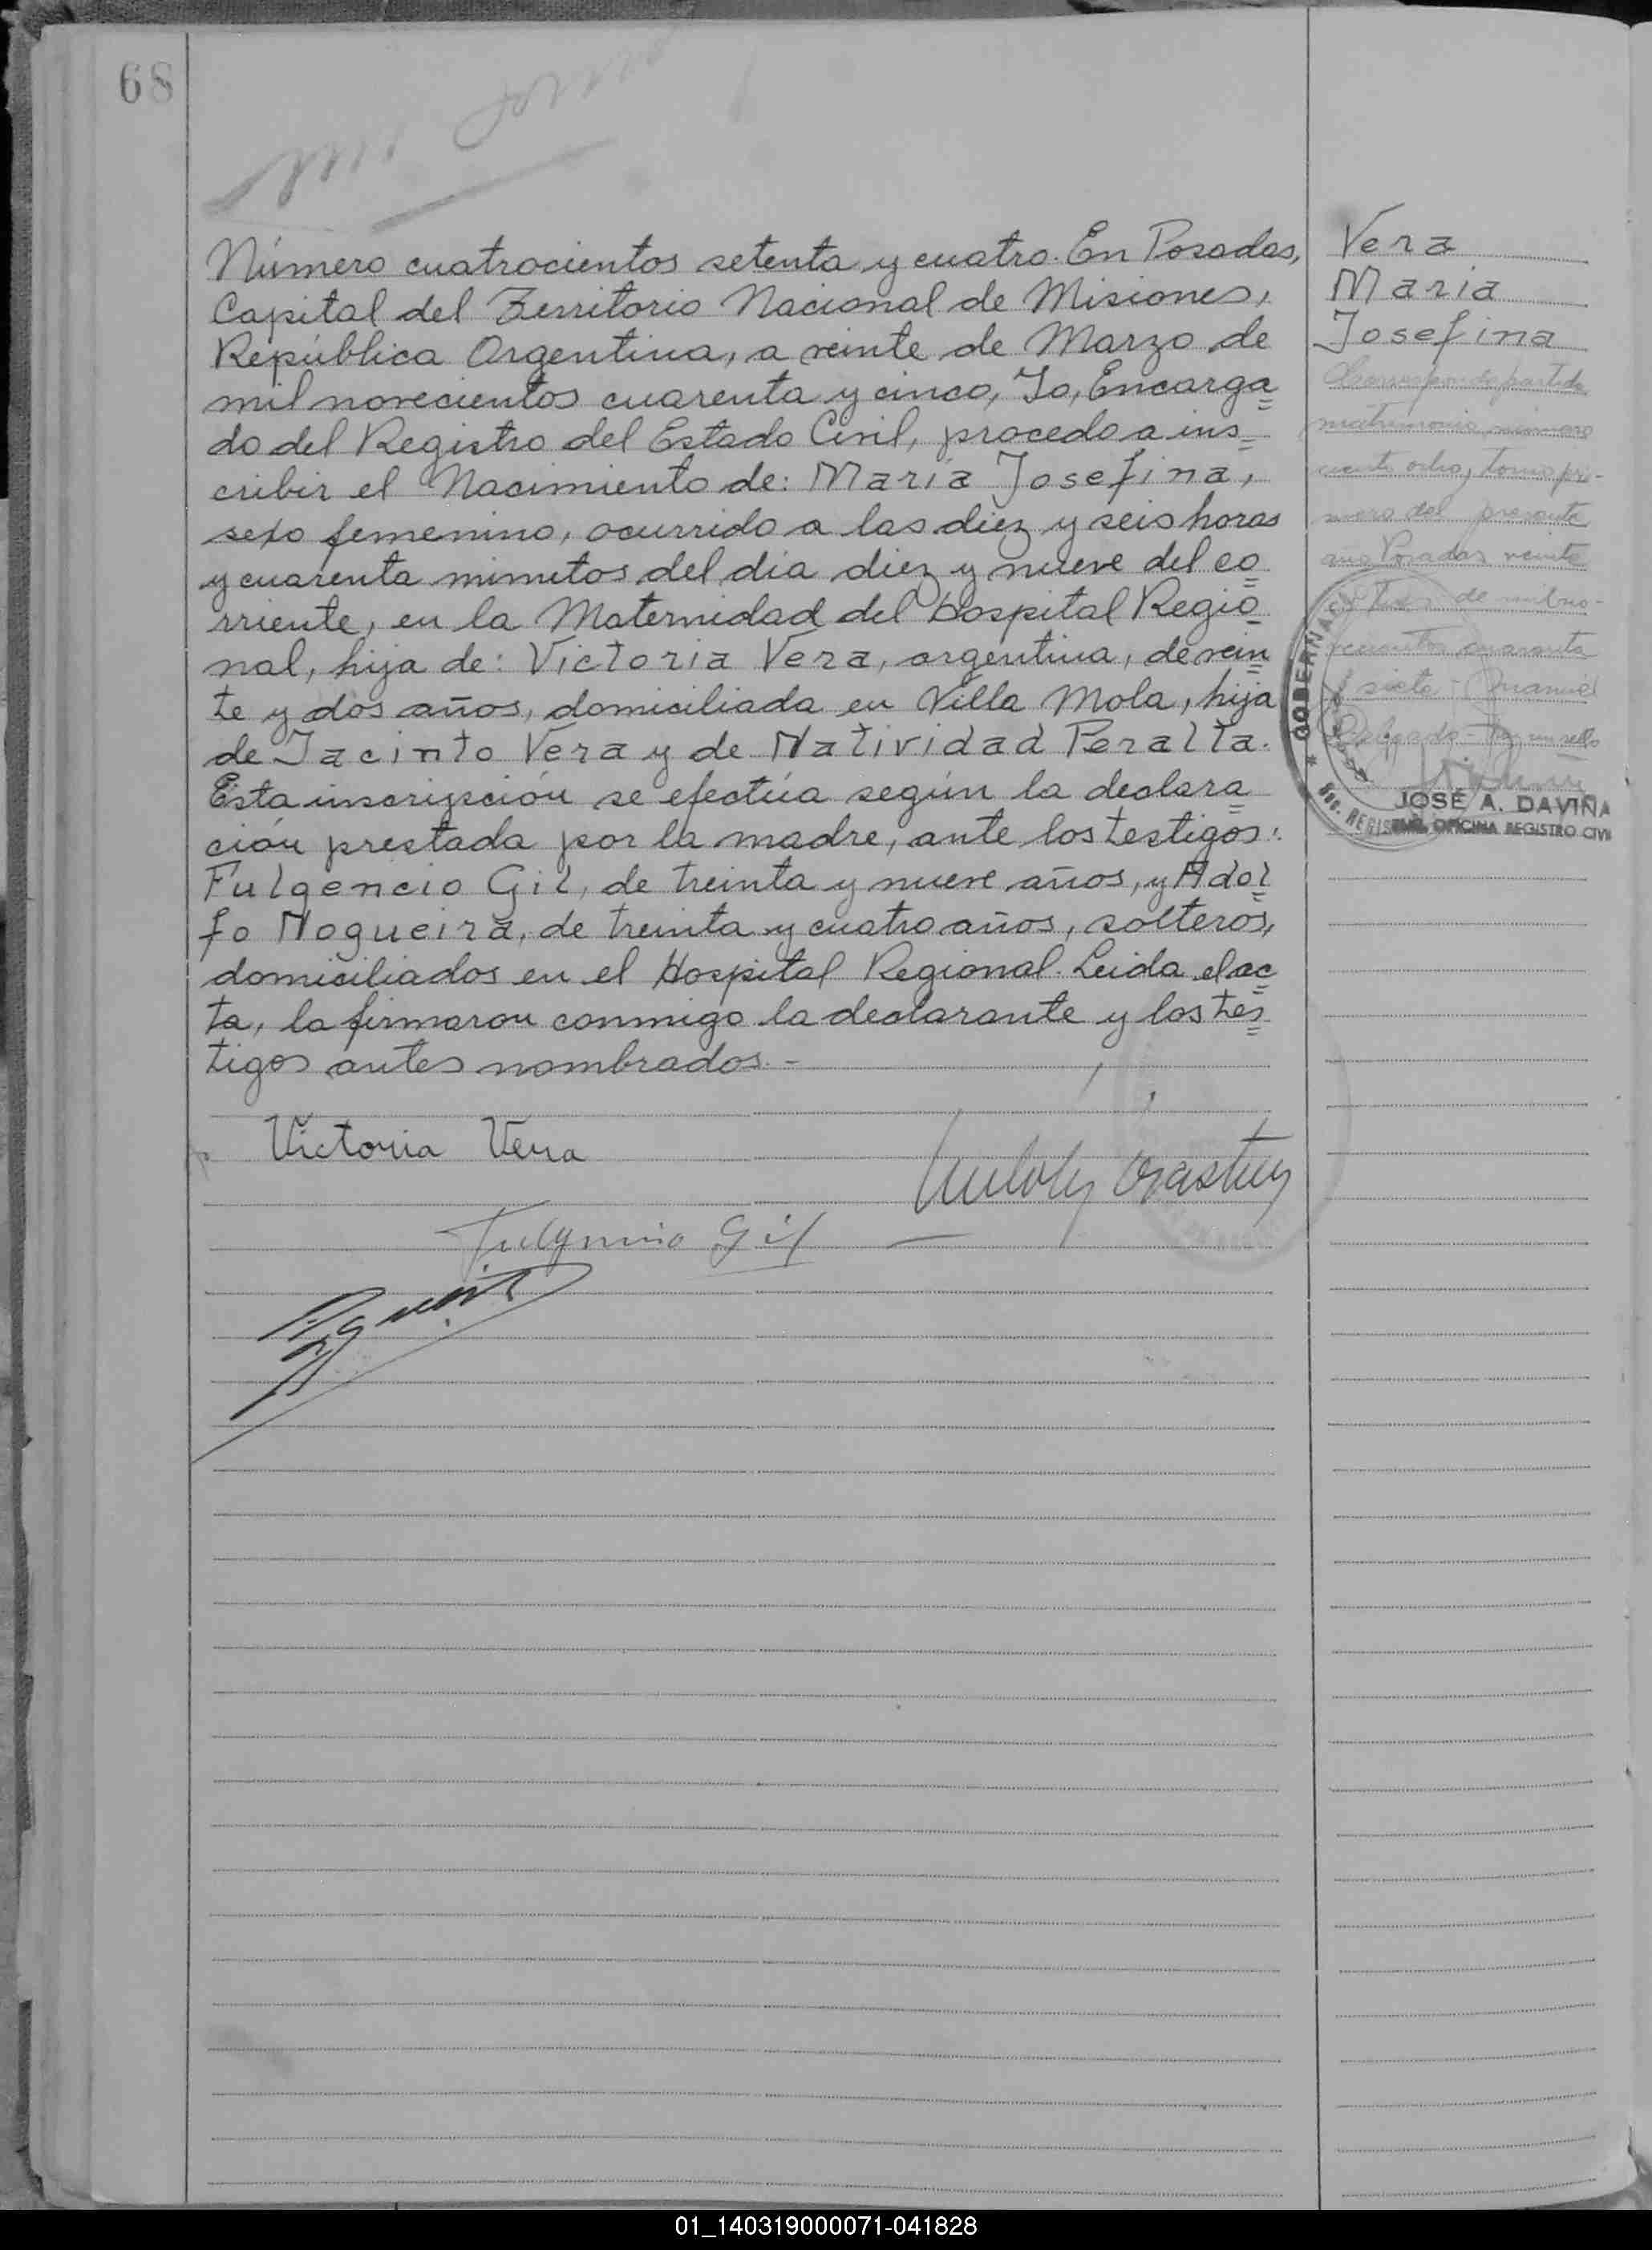 68
Número cuatrocientos setenta y cuatro. En Posadas,
Capital del Territorio Nacional de Misiones,
República Argentina, a veinte de Marzo de
mil novecientos cuarenta y cinco, Yo, Encarga
do del Registro del Estado Civil, procedo a ins
cribir el Nacimiento de: María Josefina,
sexo femenino, ocurrido a las diez y seis horas
y cuarenta minutos del día diez y nueve del co
rriente, en la Maternidad del Hospital Regio
nal, hija de: Victoria Vera, argentina, de vein
te y dos años, domiciliada en Villa Mola, hija
de Jacinto Vera y de Natividad Peralta.
Esta inscripción se efectúa según la declara
ción prestada por la madre, ante los testigos:
Fulgencio Gil, de treinta y nueve años, y Adol
fo Nogueira, de treinta y cuatro años, solteros,
domiciliados en el Hospital Regional. Leida el ac
ta, la firmaron conmigo la declarante y los tes
tigos antes nombrados.-
Victoria Vera
Fulgencio Gil
Vera
María
Josefina
partida
matrimonio número
ciento ocho, tomo pri-
mero del presente
año Posadas veinte
de mil no-
vecientos cuarenta
siete - Manuel
Delgado - Hay un sello
GOBERNAC
SEC. REGIS
JOSÉ A. DAVIÑA
ENC. OFICINA REGISTRO CIVI
01_140319000071-041828